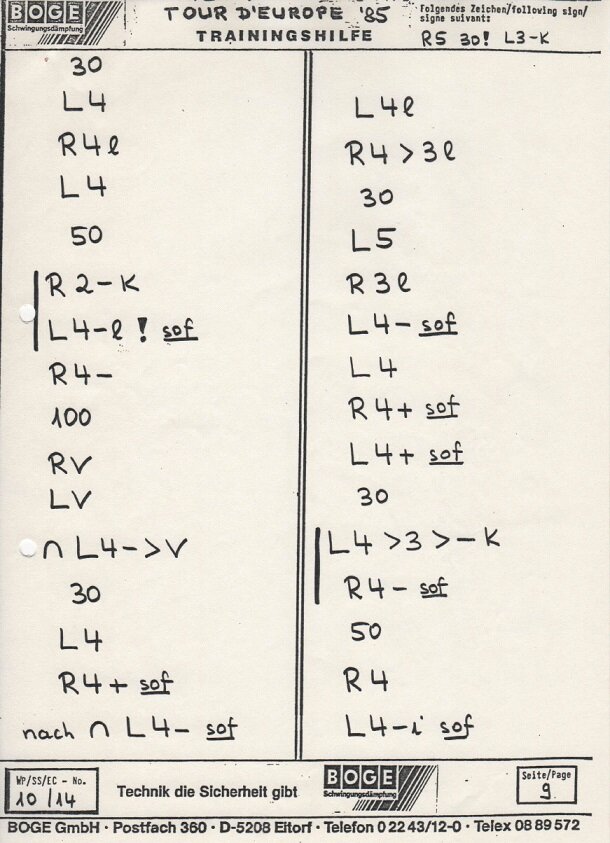 BOGE
Schwingungsdämpfung
TOUR D'EUROPE '85
TRAININGSHILFE
Folgendes Zeichen/following sign/
signe suivant:
R5 30! L3-K
30
L4
R4l
L4
50
R2-K
L4-l! sof
R4-
100
RV
LV
∩ L4->V
30
L4
R4+ sof
nach ∩ L4- sof
L4l
R4>3l
30
L5
R3l
L4- sof
L4
R4+ sof
L4+ sof
30
L4>3>-K
R4- sof
50
R4
L4-i sof
WP/SS/EC - No.
10/14
Technik die Sicherheit gibt
BOGE
Schwingungsdämpfung
Seite/Page
9
BOGE GmbH · Postfach 360 · D-5208 Eitorf · Telefon 0 22 43/12-0 · Telex 08 89 572